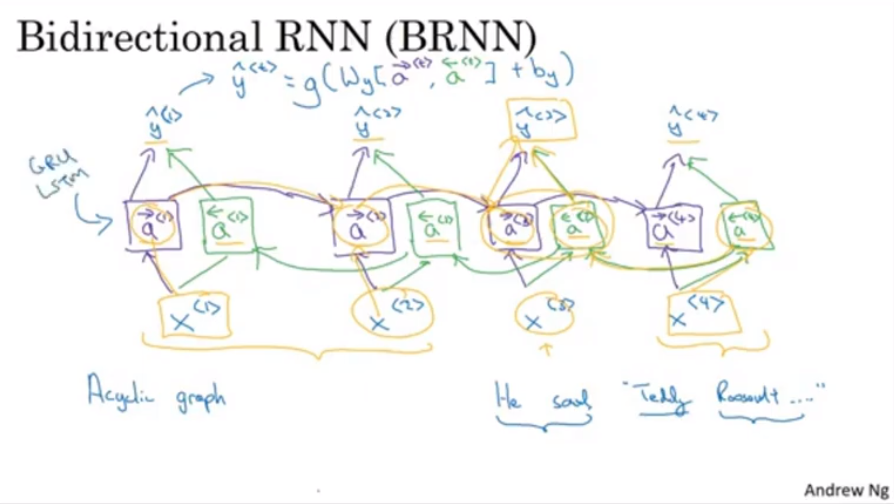 Bidirectional RNN (BRNN)
ŷ<t> = g(Wy[a→<t>, a←<t>] + by)
ŷ<1> ŷ<2> ŷ<3> ŷ<4>
GRU
LSTM
a→<1> a←<1> a→<2> a←<2> a→<3> a←<3> a→<4> a←<4>
x<1> x<2> x<3> x<4>
Acyclic graph
He said "Teddy Roosevelt...."
Andrew Ng